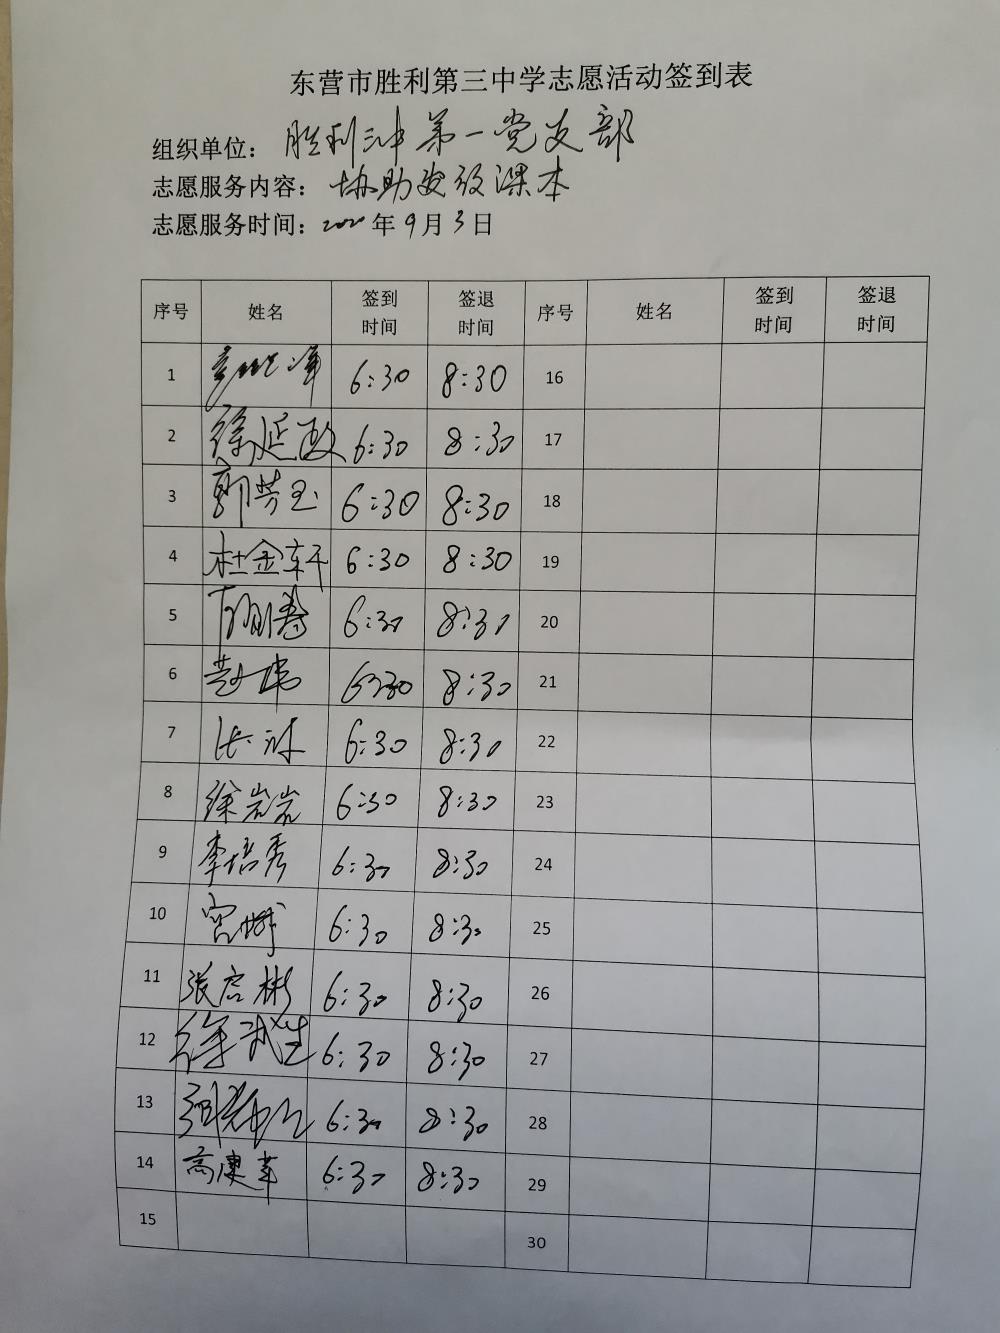 东营市胜利第三中学志愿活动签到表
组织单位：胜利三中第一党支部
志愿服务内容：协助发放课本
志愿服务时间：2020年9月3日
序号 姓名 签到时间 签退时间 序号 姓名 签到时间 签退时间
1 6:30 8:30 16
2 徐延政 6:30 8:30 17
3 郭芳玉 6:30 8:30 18
4 杜金轩 6:30 8:30 19
5 6:30 8:30 20
6 6:30 8:30 21
7 6:30 8:30 22
8 徐岩岩 6:30 8:30 23
9 李培秀 6:30 8:30 24
10 6:30 8:30 25
11 张启彬 6:30 8:30 26
12 徐武生 6:30 8:30 27
13 6:30 8:30 28
14 高康苹 6:30 8:30 29
15 30